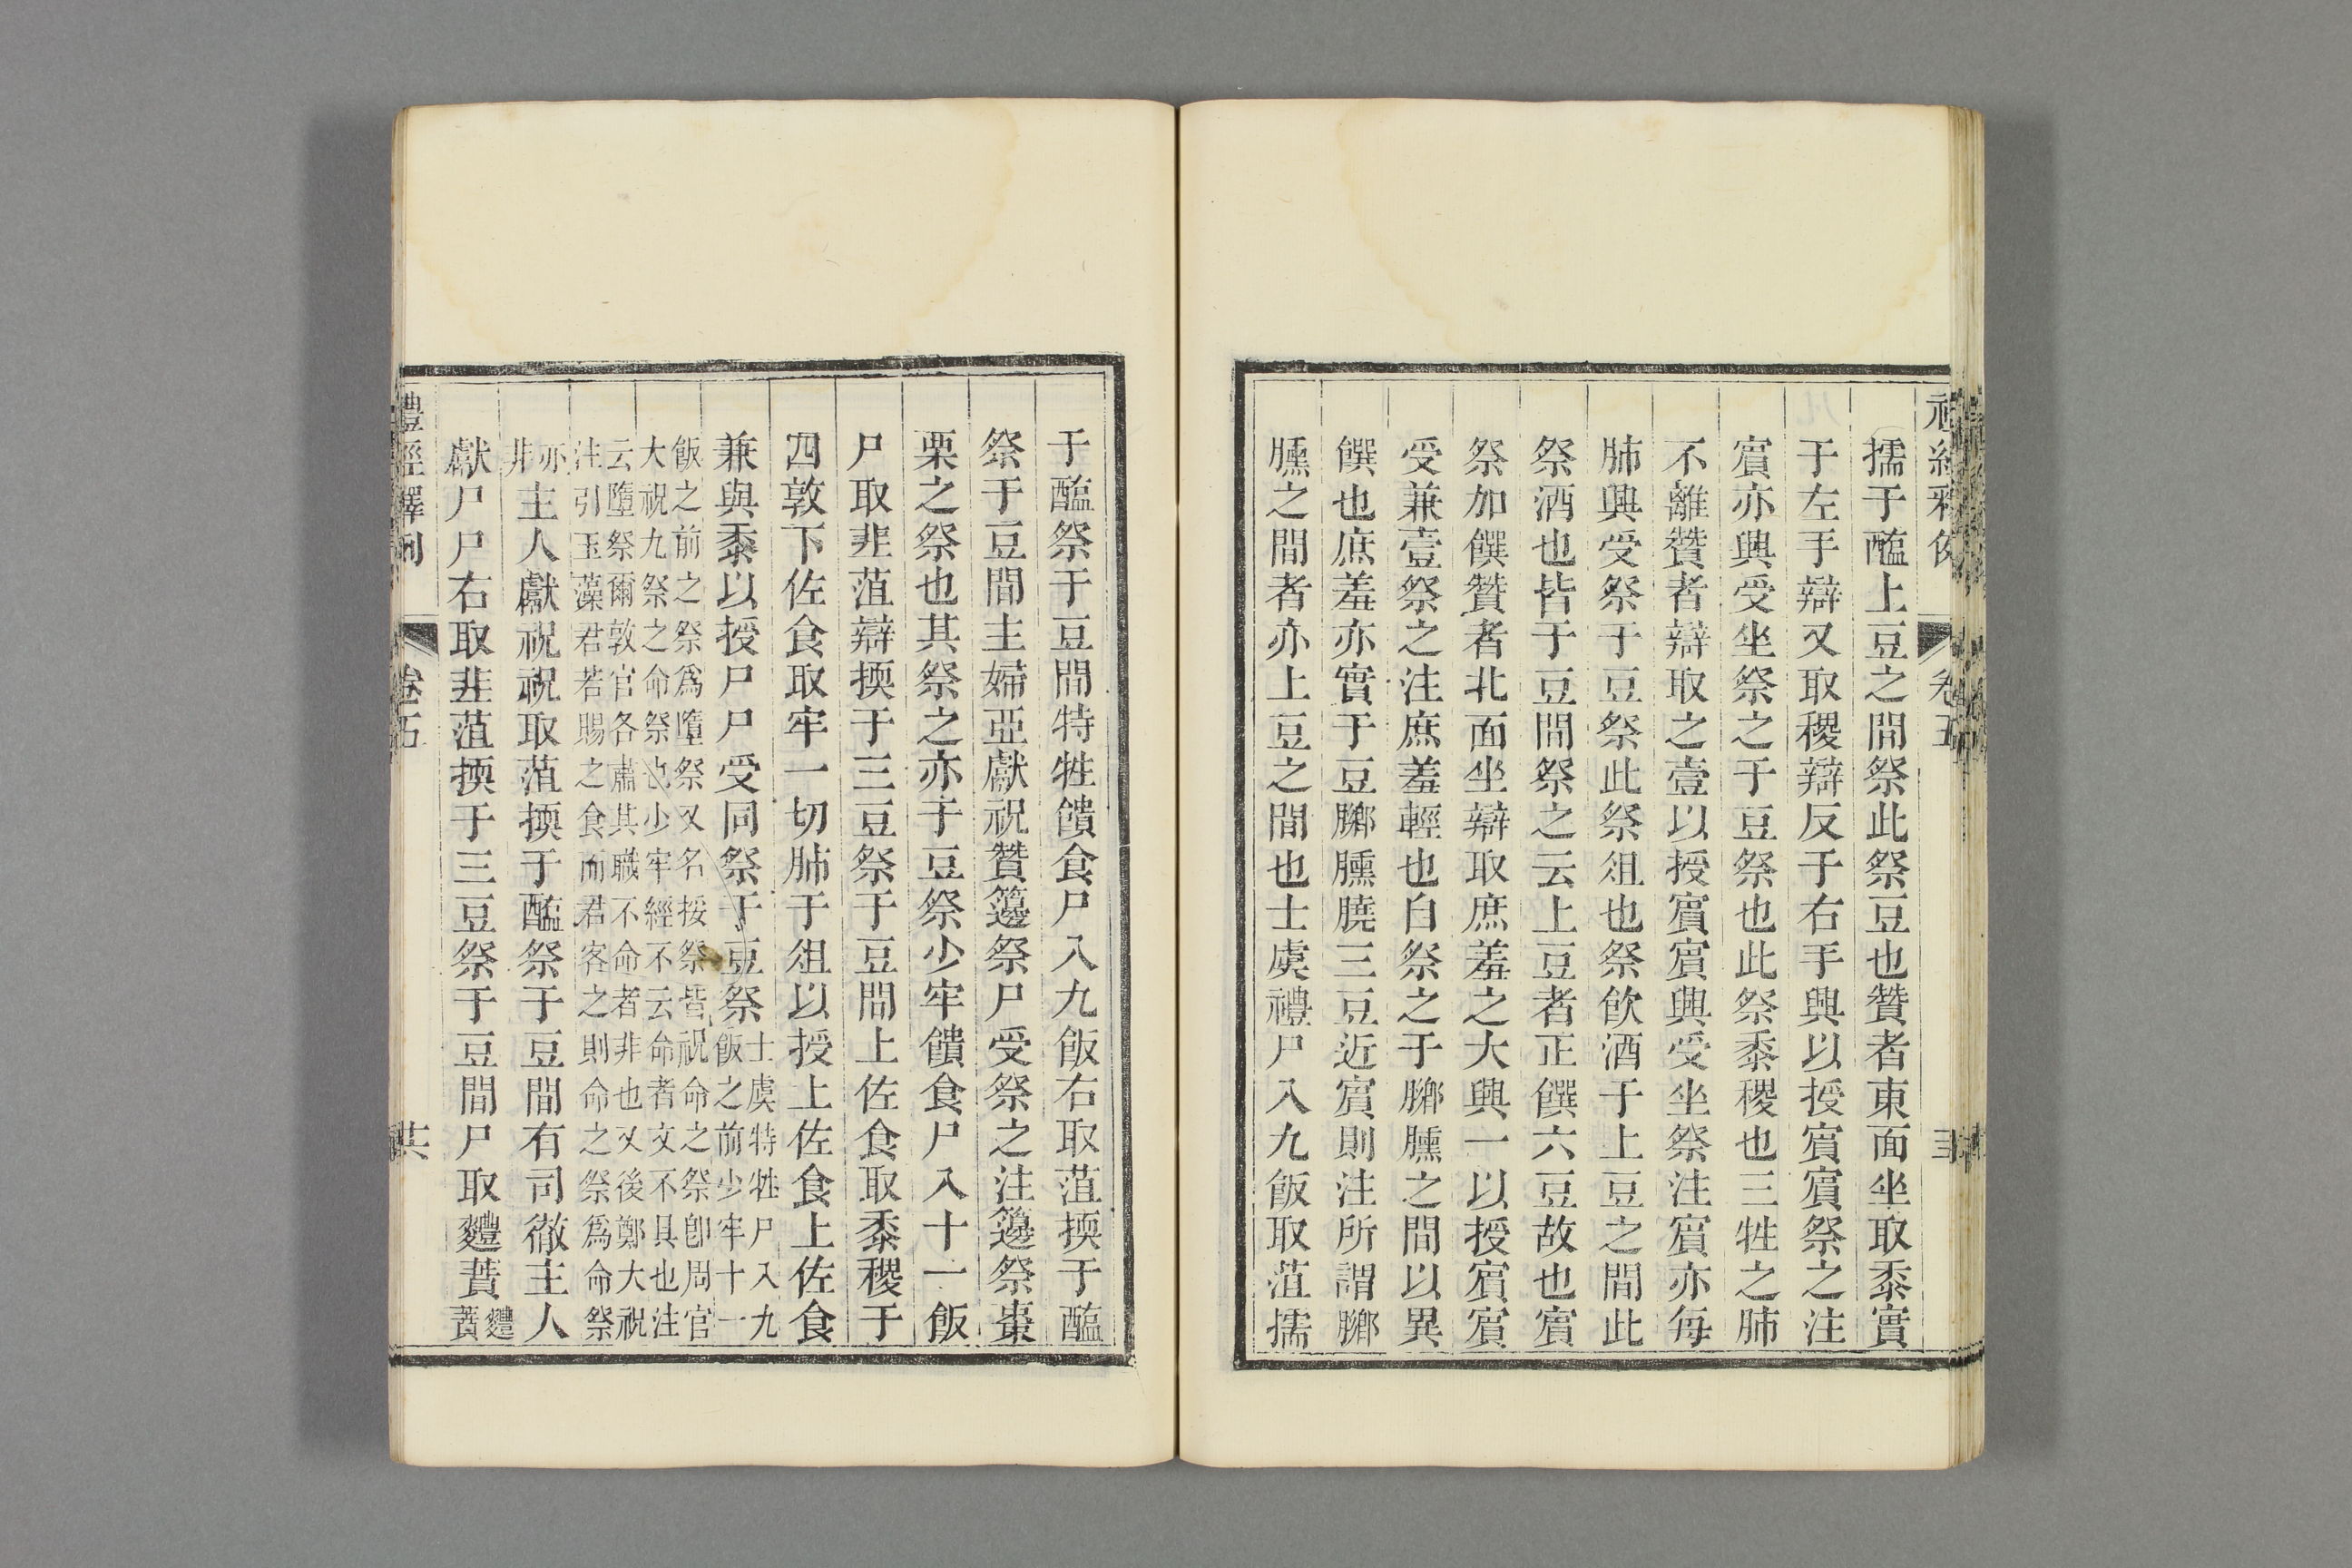 擩于醢上豆之間祭此祭豆也贊者東面坐取黍實
于左手辯又取稷辯反于右手興以授賓賓祭之注
賓亦興受坐祭之于豆祭也此祭黍稷也三牲之肺
不離贊者辯取之壹以授賓賓興受坐祭注賓亦每
肺興受祭于豆祭此祭俎也祭飲酒于上豆之間此
祭酒也皆于豆間祭之云上豆者正饌六豆故也賓
祭加饌贊者北面坐辯取庶羞之大興一以授賓賓
受兼壹祭之注庶羞輕也自祭之于膷臐之間以異
饌也庶羞亦實于豆膷臐膮三豆近賓則注所謂膷
臐之間者亦上豆之間也士虞禮尸入九飯取菹擩
于醢祭于豆間特牲饋食尸入九飯右取菹擩于醢
祭于豆間主婦亞獻祝贊籩祭尸受祭之注籩祭棗
栗之祭也其祭之亦于豆祭少牢饋食尸入十一飯
尸取韭菹辯擩于三豆祭于豆間上佐食取黍稷于
四敦下佐食取牢一切肺于俎以授上佐食上佐食
兼與黍以授尸尸受同祭于豆祭士虞特牲尸入九
飯之前少牢十一
飯之前之祭爲墮祭又名挼祭皆祝命之祭卽周官
大祝九祭之命祭也少牢經不云命者文不具也注
云墮祭爾敦官各肅其職不命者非也又後鄭大祝
注引玉藻君若賜之食而君客之則命之祭爲命祭
亦
非主人獻祝祝取菹擩于醢祭于豆間有司徹主人
獻尸尸右取韭菹擩于三豆祭于豆間尸取麷蕡麷
蕡
禮經釋例
卷五